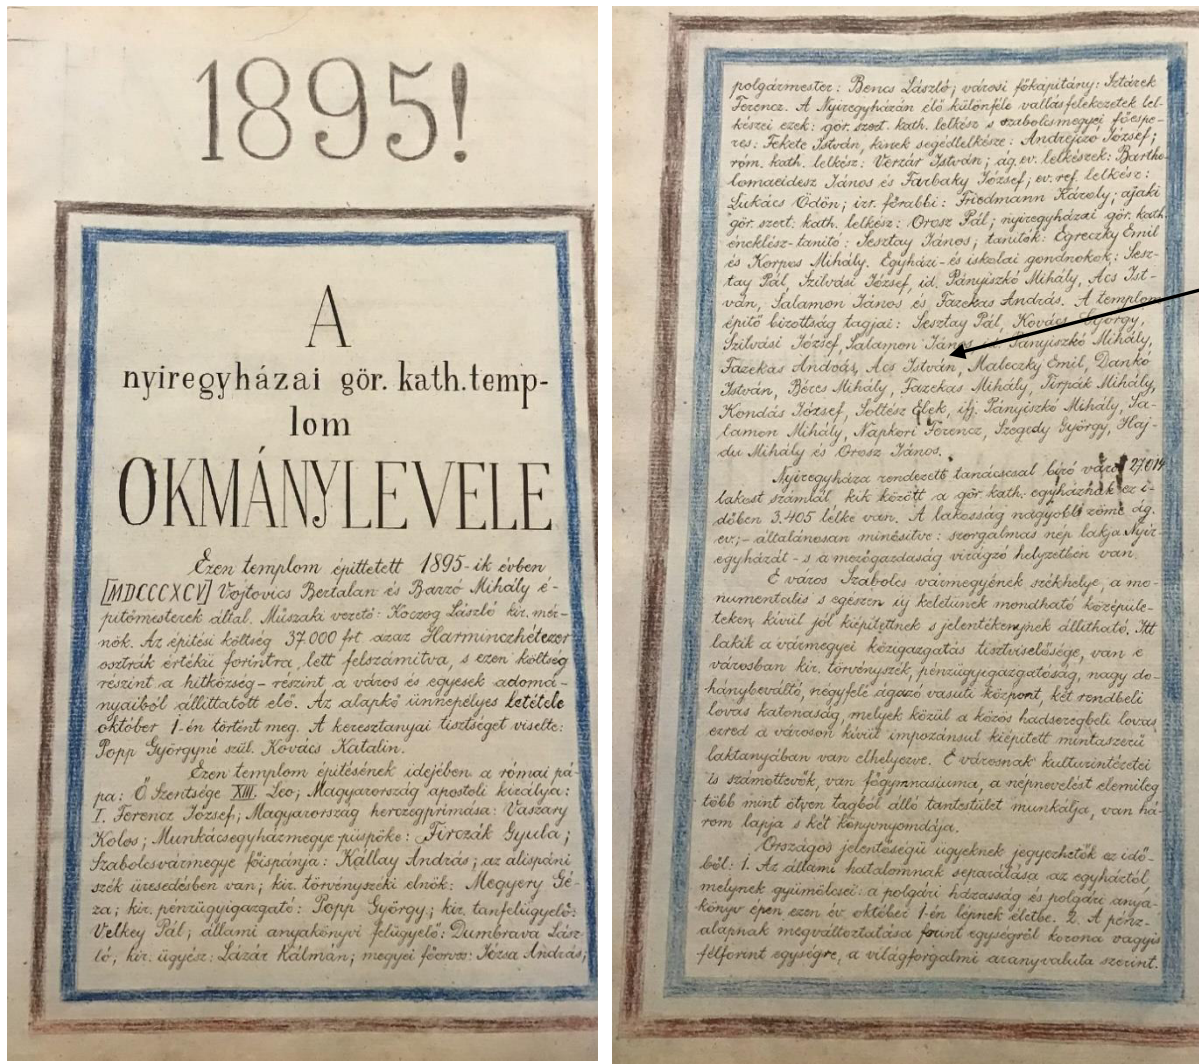 1895!
A
nyiregyházai gör. kath. temp-
lom
OKMÁNYLEVELE
Ezen templom épittetett 1895-ik évben
[MDCCCXCV] Vojtovics Bertalan és Barzó Mihály é-
pitőmesterek által. Műszaki vezető: Koczog László kir. mér-
nök. Az épitési költség 37.000 frt azaz Harminczhétezer
osztrák értékü forintra lett felszámitva, s ezen költség
részint a hitközség - részint a város és egyesek adomá-
nyaiból állittatott elő. Az alapkő ünnepélyes letétele
október 1-én történt meg. A keresztanyai tisztséget viselte:
Popp Györgyné szül. Kovács Katalin.
Ezen templom épitésének idejében a római pá-
pa: Ő Szentsége XIII. Leo; Magyarország apostoli királya:
I. Ferencz József; Magyarország herczegprimása: Vaszary
Kolos; Munkácsegyházmegye püspöke: Firczák Gyula;
Szabolcsvármegye főispánja: Kállay András; az alispáni
szék üresedésben van; kir. törvényszéki elnök: Megyery Gé-
za; kir. pénzügyigazgató: Popp György; kir. tanfelügyelő:
Velkey Pál; állami anyakönyvi felügyelő: Dumbrava Lász-
ló, kir. ügyész: Lázár Kálmán; megyei főorvos: Józsa András;
polgármester: Bencs László; városi főkapitány: Sztárek
Ferencz. A Nyiregyházán élő különféle vallásfelekezetek lel-
készei ezek: gör. szert. kath. lelkész s szabolcsmegyei főespe-
res: Fekete István, kinek segédlelkésze: Andrejizó József;
róm. kath. lelkész: Verzár István; ág. ev. lelkészek: Bartho-
lomaeidesz János és Farbaky József; ev. ref. lelkész:
Lukács Ödön; izr. főrabbi: Friedmann Károly; ajaki
gör. szert. kath. lelkész: Orosz Pál; nyiregyházai gör. kath.
éneklész-tanitó: Sesztay János; tanitók: Egreczky Emil
és Korpos Mihály. Egyházi- és iskolai gondnokok: Sesz-
tay Pál, Szilvási József, id. Pányiszkó Mihály, Acs Ist-
ván, Salamon János és Fazekas András. A templom
épitő bizottság tagjai: Sesztay Pál, Kovács György,
Szilvási József, Salamon János, id. Pányiszkó Mihály,
Fazekas András, Acs István, Maleczky Emil, Dankó
István, Béres Mihály, Fazekas Mihály, Tirpák Mihály,
Kondás József, Soltész Elek, ifj. Pányiszkó Mihály, Sa-
lamon Mihály, Napkori Ferencz, Szegedy György, Haj-
du Mihály és Orosz János.
Nyiregyháza rendezett tanácscsal biró város 27.014
lakost számlál, kik között a gör. kath. egyháznak ez i-
dőben 3.405 lélke van. A lakosság nagyobb zöme ág.
ev.; - általánosan minősitve: szorgalmas nép lakja Nyir-
egyházát - s a mezőgazdaság virágzó helyzetben van.
E város Szabolcs vármegyének székhelye, a mo-
numentalis s egészen uj keletünek mondható középüle-
teken kivül jól kiépitettnek s jelentékenynek állitható. Itt
lakik a vármegyei közigazgatás tisztviselősége, van e
városban kir. törvényszék, pénzügyigazgatóság, nagy do-
hánybeváltó, négyfelé ágazó vasuti központ, két rendbeli
lovas katonaság, melyek közül a közös hadseregbeli lovas
ezred a városon kivül impozánsul kiépitett mintaszerü
laktanyában van elhelyezve. E városnak kulturintézetei
is számottevők, van főgymnasiuma, a népnevelést elemileg
több mint ötven tagból álló tantestület munkálja, van há-
rom lapja s két könyvnyomdája.
Országos jelentőségü ügyeknek jegyezhetők ez idő-
ből: 1. Az állami hatalomnak separálása az egyháztól
melynek gyümölcsei a polgári házasság és polgári anya-
könyv épen ezen év október 1-én lépnek életbe. 2. A pénz-
alapnak megváltoztatása forint egységről korona vagyis
félforint egységre, a világforgalmi aranyvaluta szerint.